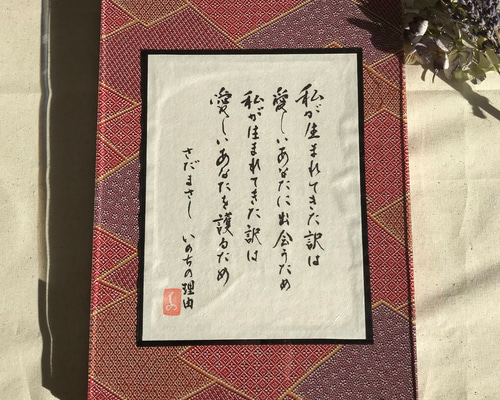 私が生まれてきた訳は
愛しいあなたに出会うため
私が生まれてきた訳は
愛しいあなたを護るため
さだまさし いのちの理由